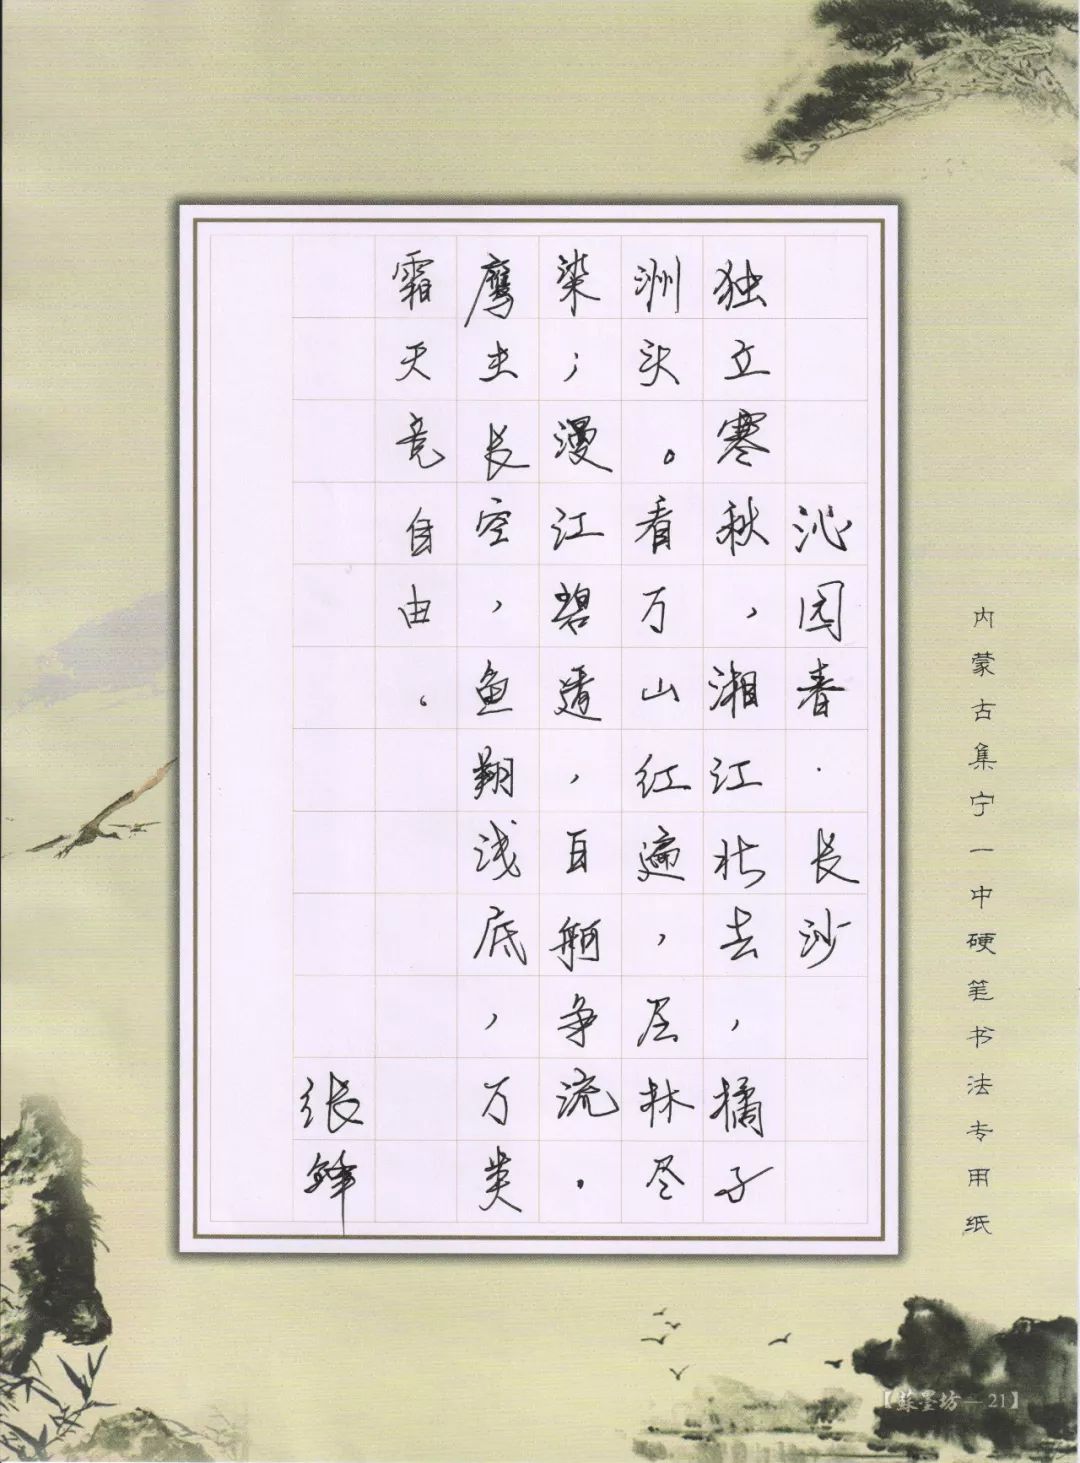 内蒙古集宁一中硬笔书法专用纸
沁园春·长沙
独立寒秋，湘江北去，橘子
洲头。看万山红遍，层林尽
染；漫江碧透，百舸争流。
鹰击长空，鱼翔浅底，万类
霜天竞自由。
张锋
【蘇墨坊—21】